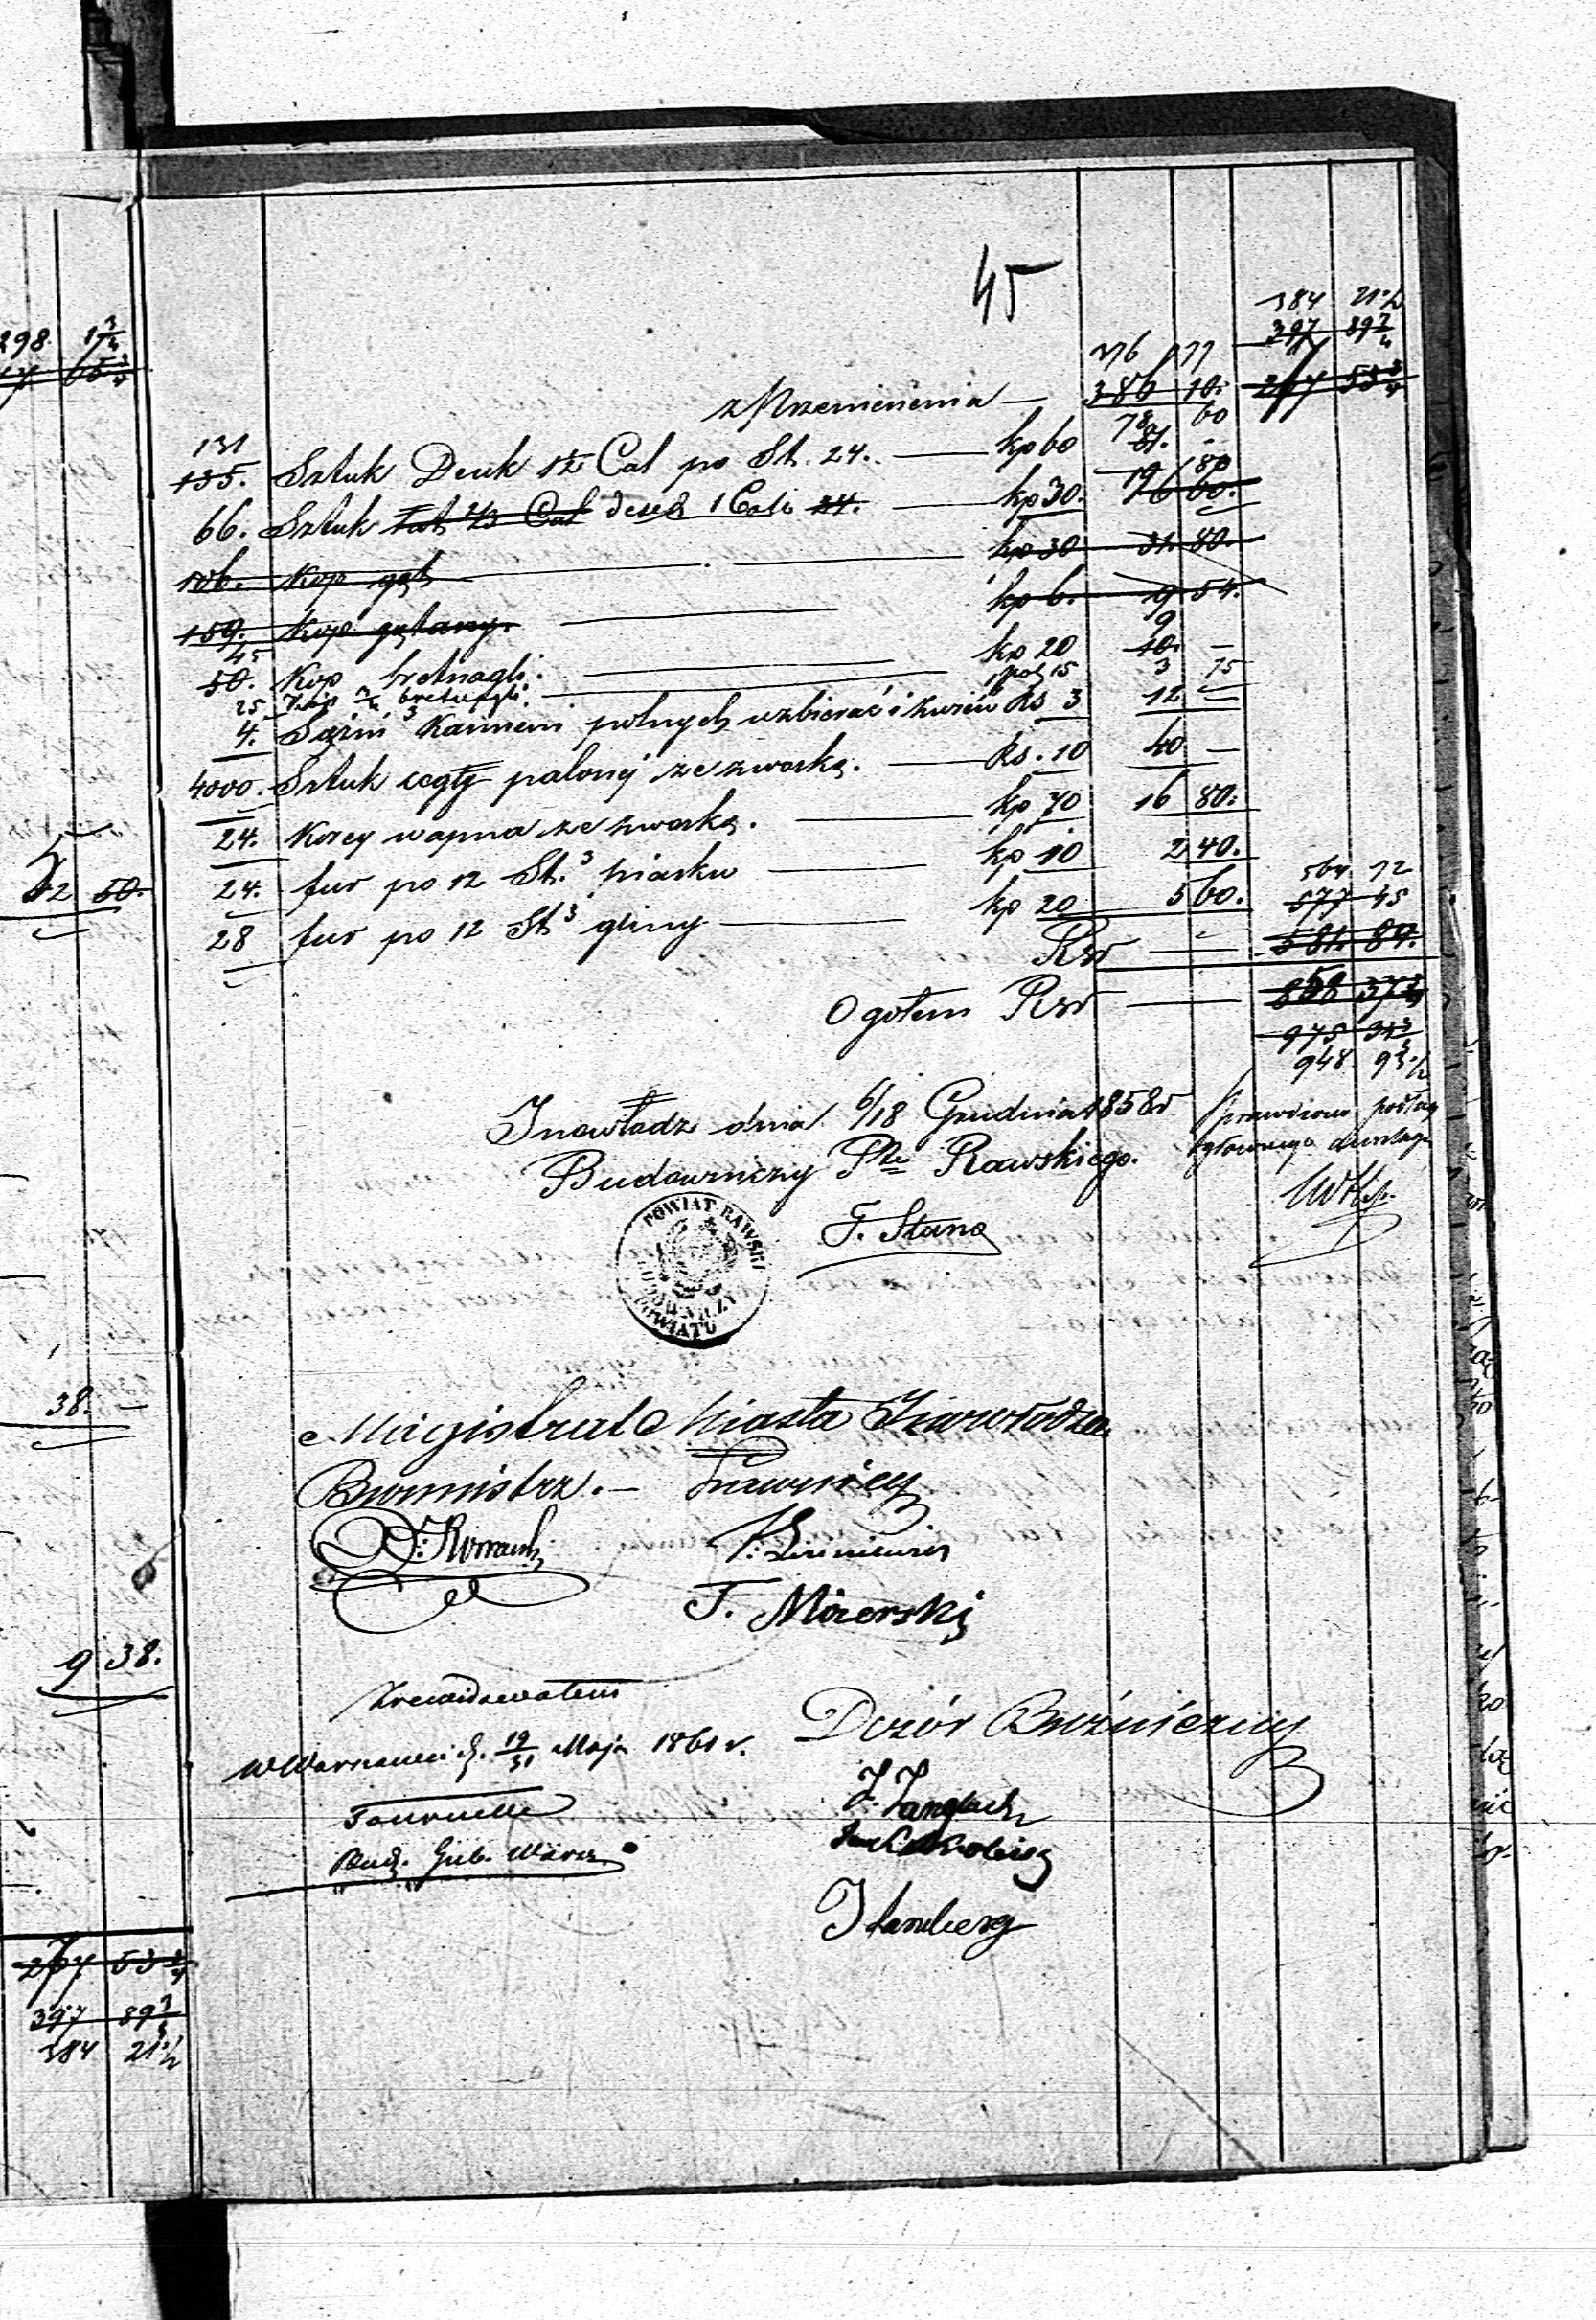 45
384 21 1/2
397 89 3/4
376 77
z Przeniesienia — 386 10. 267 53 3/4
131
135. Sztuk Desek 1 1/2 Cal po St. 24. — kp 60 78 60
81. -
66. Sztuk Łat 2/3 Cal desek 1 Cali 24. — kp 30. 19 80
106. Kop gąt — kp 30 31 80.
159. Kop gątany. — kp 6. 9 54.
45 9
50. Kop bretnagli. — kp 20 10. —
25 Kop 1/2 bretnagli. — po 15 3 75
4. Sążni³ Kamieni polnych uzbierać i zwieść Rs 3 12 —
4000. Sztuk cegły palonej ze zwózką. — Rs. 10 40 —
24. Korcy wapna ze zwózką. — kp 70 16 80.
24. fur po 12 St.³ piasku — kp 10 2 40.
28 fur po 12 St³ gliny — kp 20 5 60.
564 72
577 45
Rsr — 581. 84.
Ogołem Rsr — 858 37 3/4
975 34 3/4
948 93 1/2
Inowłódz dnia 6/18 Grudnia 1858r
Budowniczy Ptu Rawskiego.
F. Stano
Sprawdzono podług
głównego
POWIAT RAWSKI
BUDOWNICZY
POWIATU
Magistrat Miasta Inowłodza
Burmistrz. — Ławnicy
T. Mizerski
Zrewidowałem
w Warszawie d. 19/31 Maja 1861 r.
Tournelle
Bud. Gub. Warsz
Dozór Bóżniczny
298. 1 3/4
17 65 3/4
50.
38. —
9 38.
267 53 3/4
397 89 3/4
384 21 1/2